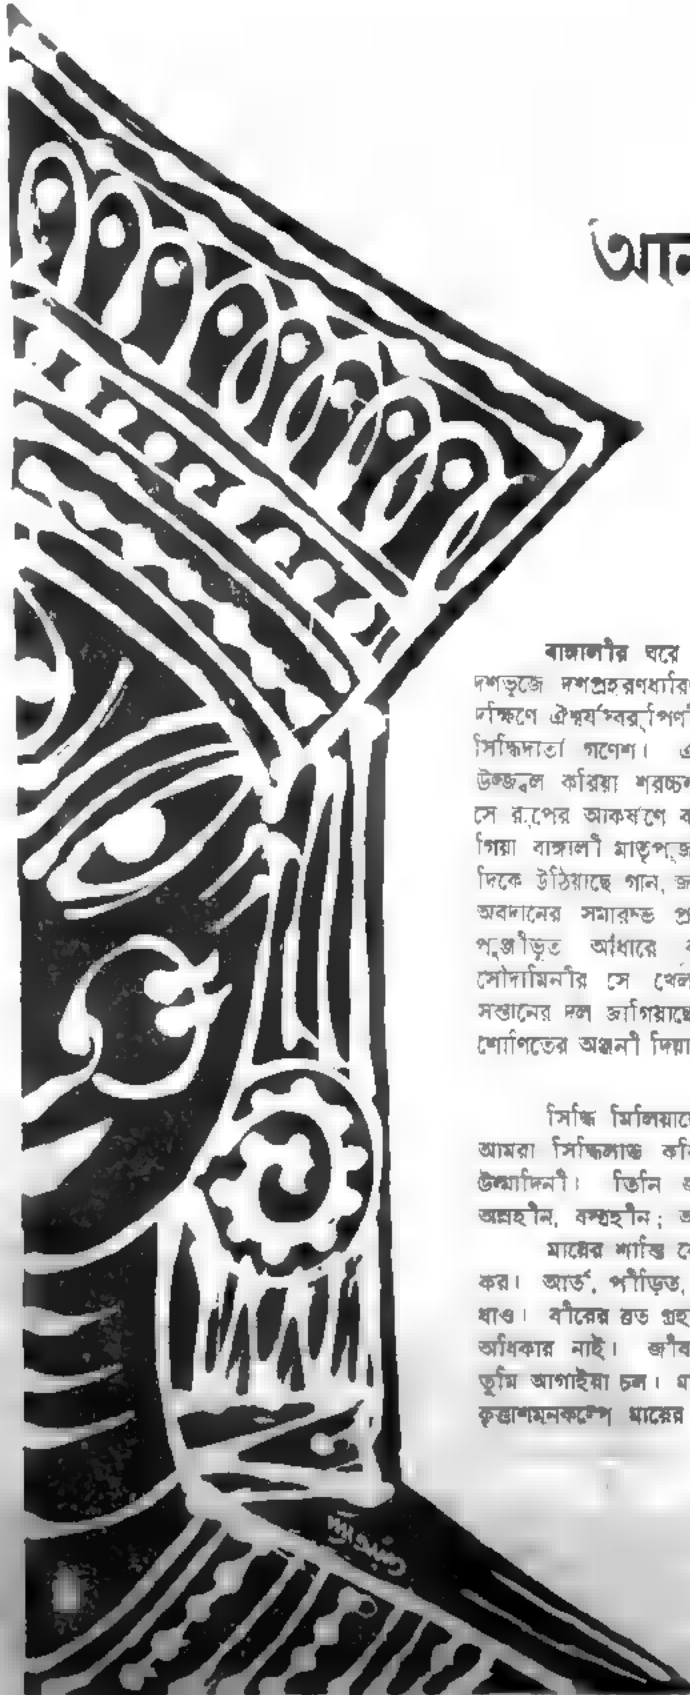 আন
বাঙ্গালীর ঘরে
দশভুজে দশপ্রহরণধারি
দক্ষিণে ঐশ্বর্যস্বরূপিণী
সিদ্ধিদাতা গণেশ। এ
উজ্জ্বল করিয়া শরচ্চ
সে রূপের আকর্ষণে ব
গিয়া বাঙ্গালী মাতৃপূজ
দিকে উঠিয়াছে গান, জ
অবদানের সমারম্ভ প্র
পুঞ্জীভূত আঁধারে ব
সৌদামিনীর সে খেল
সন্তানের দল জাগিয়াছে
শোণিতের অঞ্জলী দিয়া
সিদ্ধি মিলিয়াছে
আমরা সিদ্ধিলাভ করি
উন্মাদিনী। তিনি
অন্নহীন, বস্ত্রহীন;
মায়ের শান্তি
কর। আর্ত, পীড়িত,
ধাও। বীরের ব্রত গ্রহ
অধিকার নাই। জীব
তুমি আগাইয়া চল। মা
মায়ের